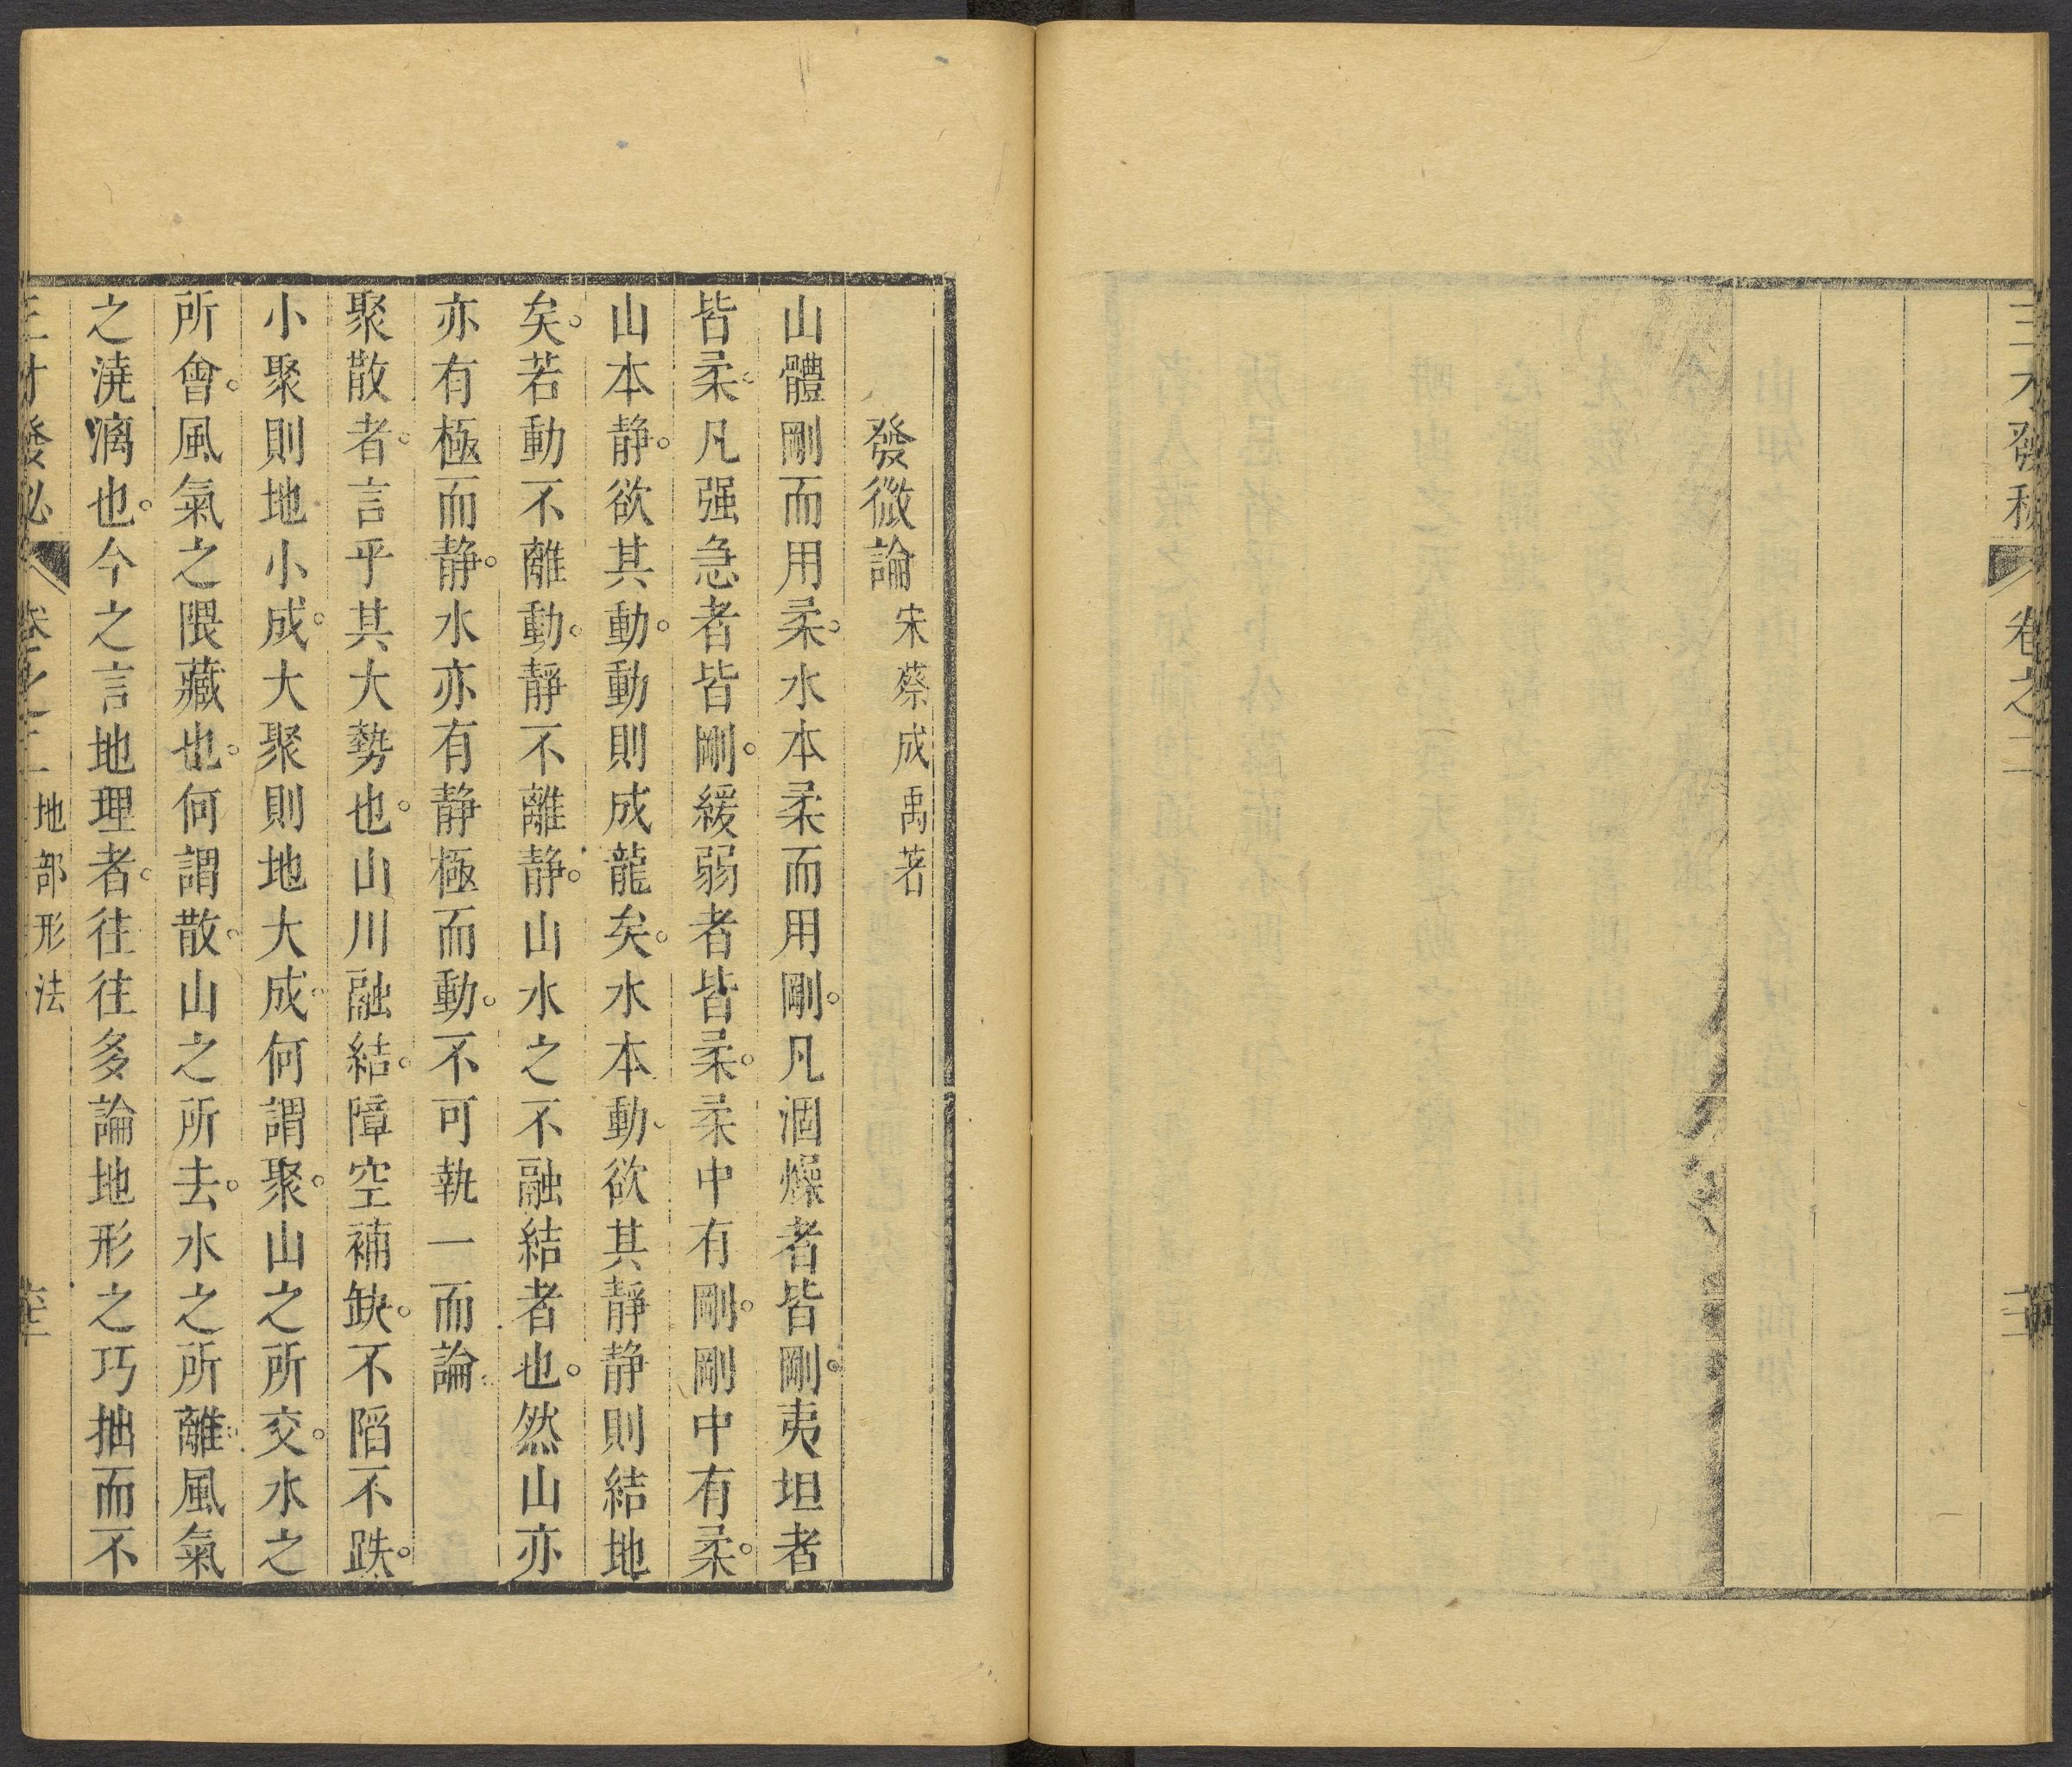 三才發秘
卷之二
發微論 宋蔡成禹著
山體剛而用柔。水本柔而用剛。凡涸燥者皆剛。夷坦者
皆柔。凡强急者皆剛。緩弱者皆柔。柔中有剛。剛中有柔。
山本静。欲其動。動則成龍矣。水本動。欲其靜静則結地
矣。若動不離動。靜不離静。山水之不融結者也。然山亦
亦有極而静。水亦有静極而動。不可執一而論。
聚散者。言乎其大勢也。山川融結。障空補缺。不陷不跌。
小聚則地小成。大聚則地大成。何謂聚。山之所交。水之
所會。風氣之隈藏也。何謂散。山之所去。水之所離。風氣
之澆漓也。今之言地理者。往往多論地形之巧拙而不
三才發秘 卷之二 地部形法